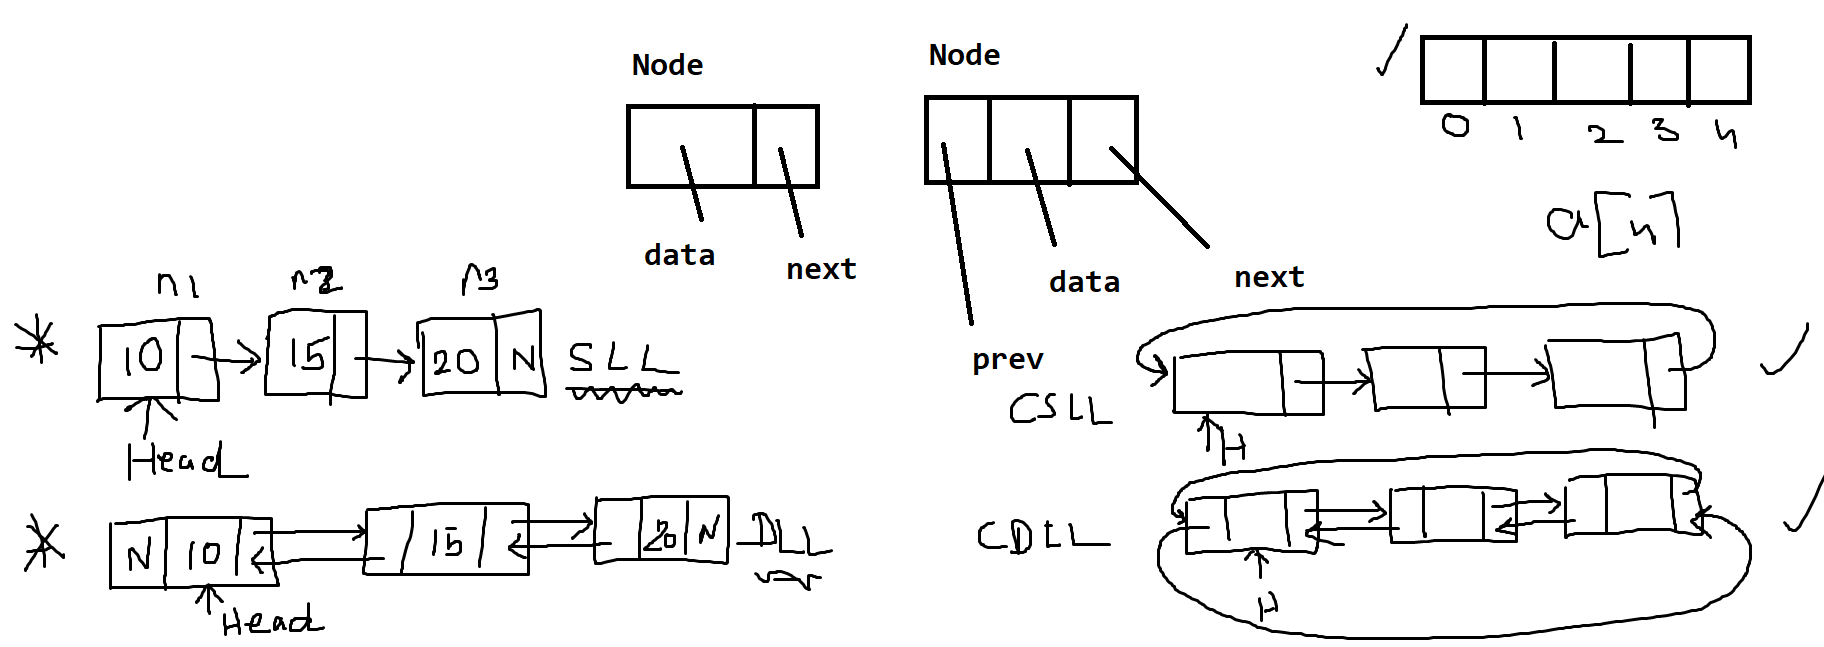 Node
data next
Node
prev data next
0 1 2 3 4
a[4]
n1 n2 n3
10 15 20 N SLL
Head
N 10 15 20 N DLL
Head
CSLL
H
CDLL
H